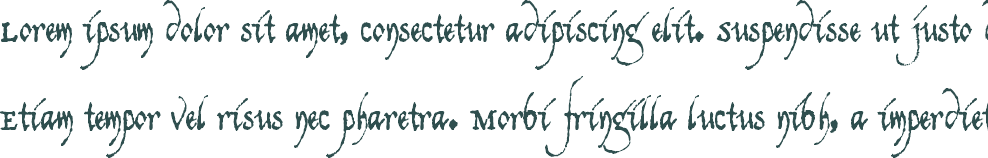 Lorem ipsum dolor sit amet, consectetur adipiscing elit. Suspendisse ut justo
Etiam tempor vel risus nec pharetra. Morbi fringilla luctus nibh, a imperdiet